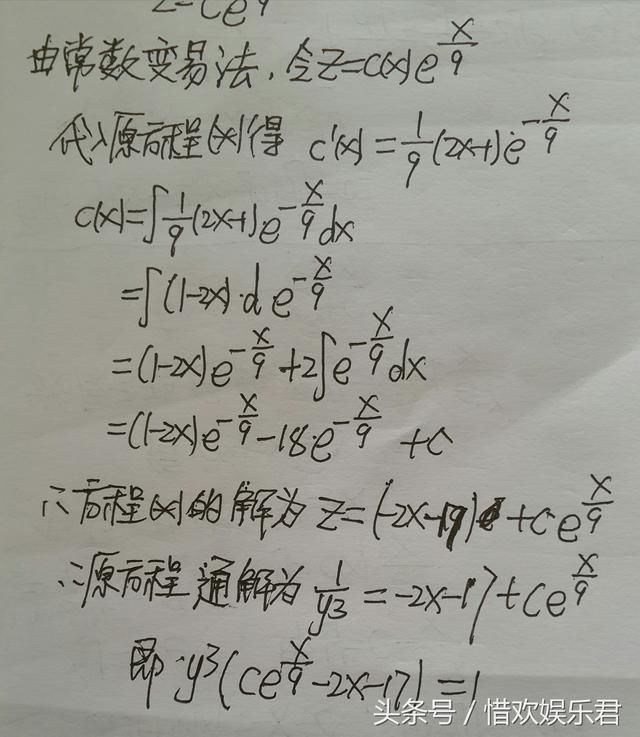 z=ce^(x/9)
由常数变易法,令z=c(x)e^(x/9)
代入原方程(x)得 c'(x)=1/9(2x-1)e^(-x/9)
c(x)=∫1/9(2x-1)e^(-x/9)dx
=∫(1-2x)·d e^(-x/9)
=(1-2x)e^(-x/9)+2∫e^(-x/9)dx
=(1-2x)e^(-x/9)-18·e^(-x/9)+c
∴方程(x)的解为 z=(-2x-17)+ce^(x/9)
∴原方程通解为 1/y³=-2x-17+ce^(x/9)
即:y³(ce^(x/9)-2x-17)=1
头条号/惜欢娱乐君